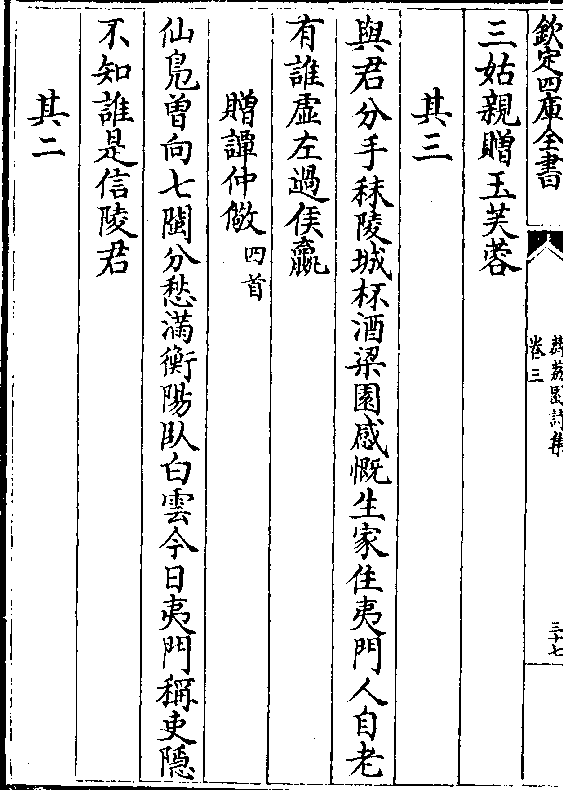 欽定四庫全書
薜荔園詩集
卷三
三十七
三姑親贈玉芙蓉
其三
與君分手秣陵城杯酒梁園感慨生家住夷門人自老
有誰虛左過侯嬴
贈譚仲儆 四首
仙鳬曾向七閩分愁滿衡陽臥白雲今日夷門稱吏隱
不知誰是信陵君
其二